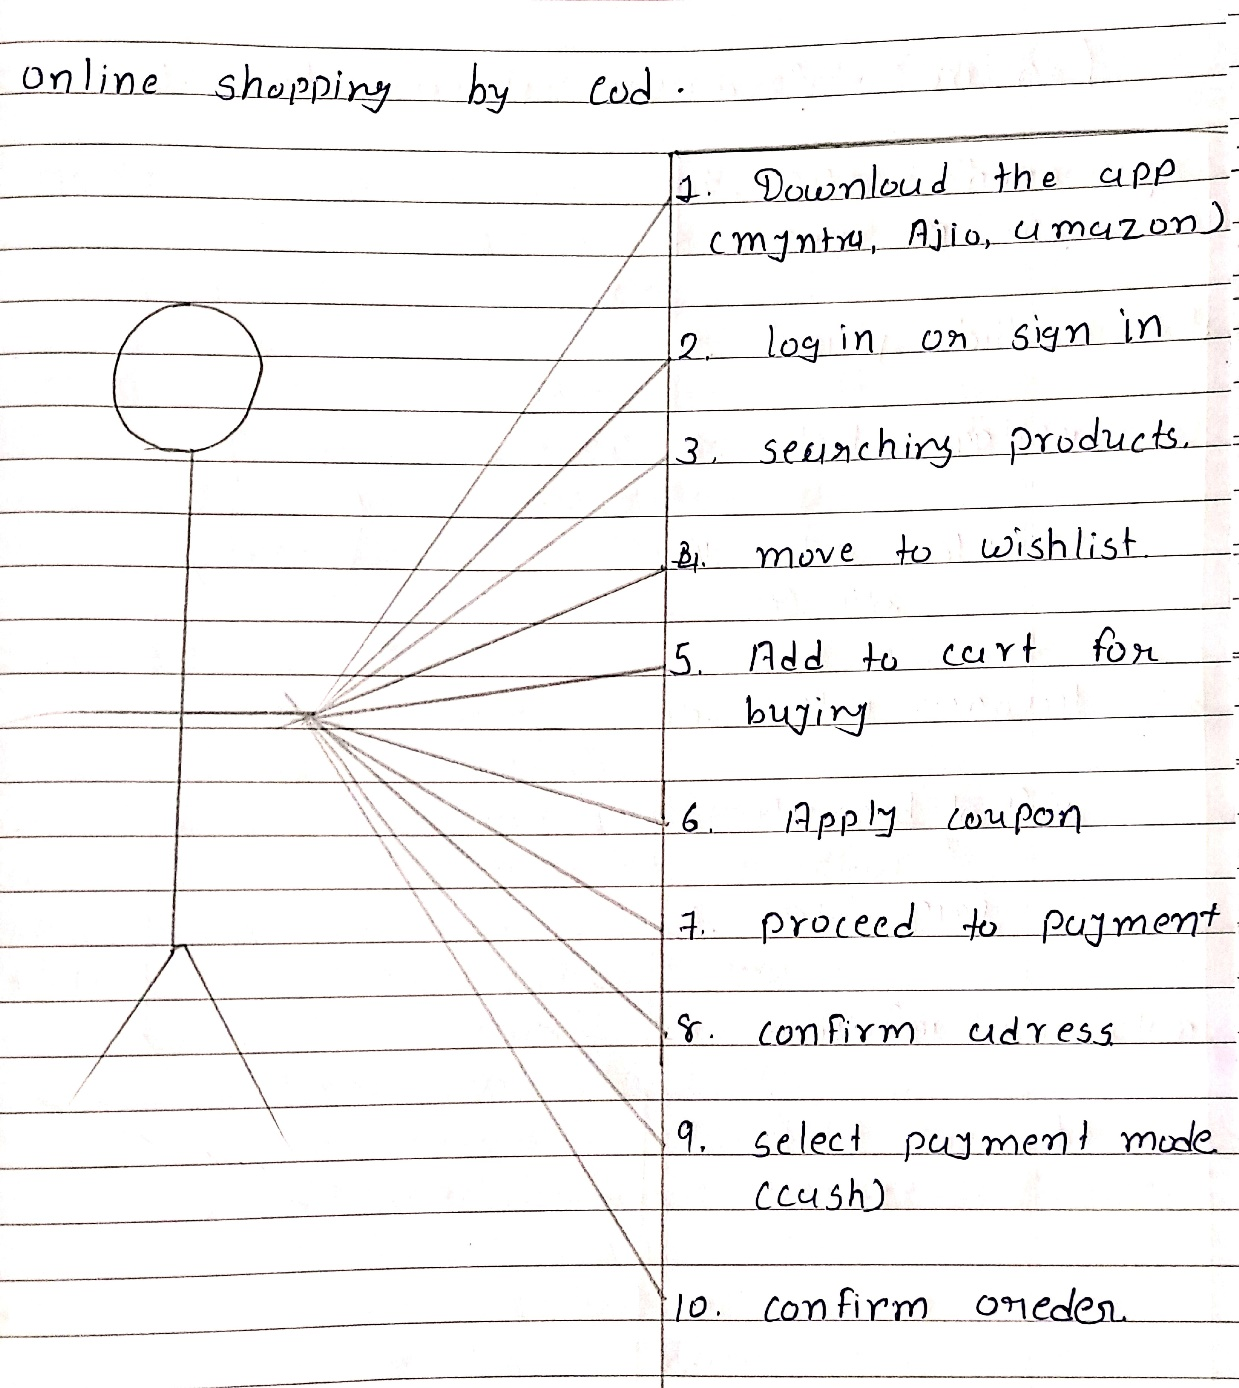 online shopping by cod.
1. Download the app
(myntra, Ajio, amazon)
2. log in or sign in
3. searching products.
4. move to wishlist.
5. Add to cart for
buying
6. Apply coupon
7. proceed to payment
8. confirm adress
9. select payment mode
(cash)
10. confirm oreder